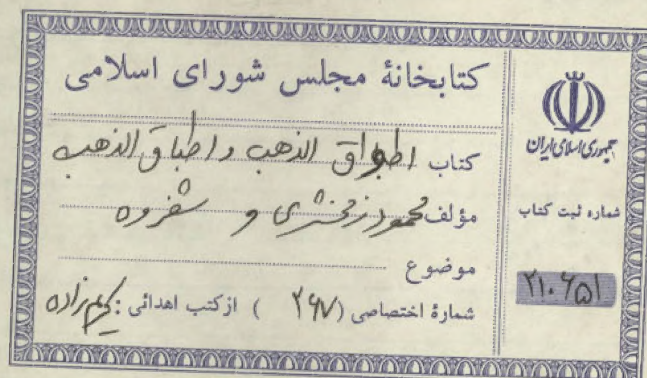 کتابخانهٔ مجلس شورای اسلامی
کتاب اطواق الذهب و اطباق الذهب
مؤلف محمود زمخشری و شفروه
موضوع
شمارهٔ اختصاصی (۲۶۷) از کتب اهدائی : کریم‌زاده
جمهوری اسلامی ایران
شماره ثبت کتاب
۲۱۰۶۵۱